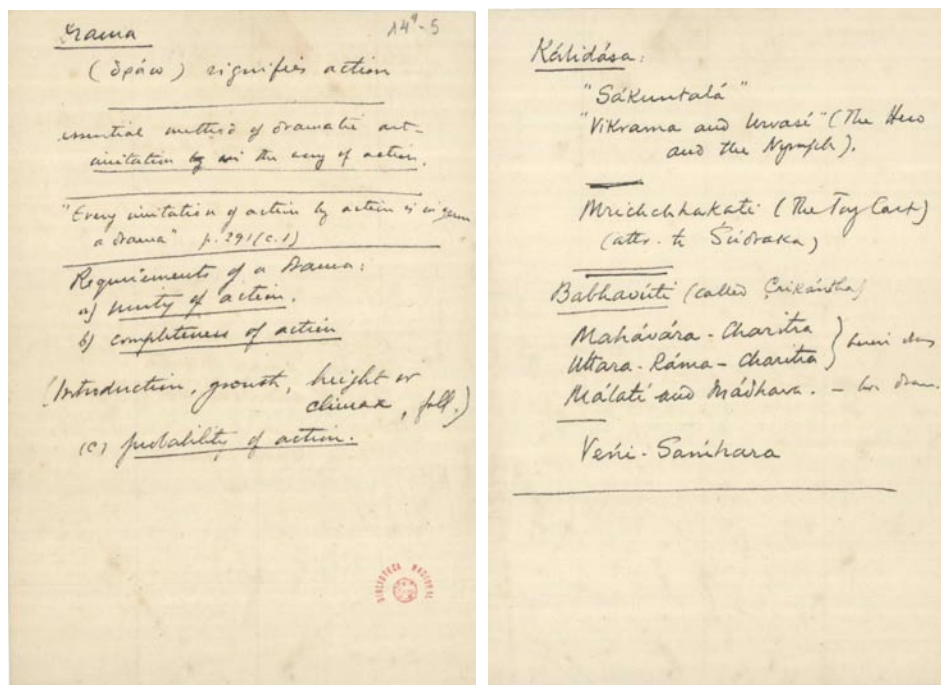 Drama
14⁴-5
(δράω) signifies action
essential method of dramatic art –
imitation by in the way of action.
"Every imitation of action by action is in germ
a drama" p. 291 (c.1)
Requirements of a drama:
a) unity of action.
b) completeness of action
(Introduction, growth, height or
climax, fall.)
(c) probability of action.
BIBLIOTECA NACIONAL
Kálidása:
"Sákuntalá"
"Vikrama and Urvasí" (The Hero
and the Nymph).
Mrichchhakati (The Toy Cart)
(attr. to Śúdraka)
Babhavúti (called Çrikántha)
Mahávára-Charitra
Uttara-Ráma-Charitra } heroic
Málatí and Mádhava. –
Vení-Saníhara